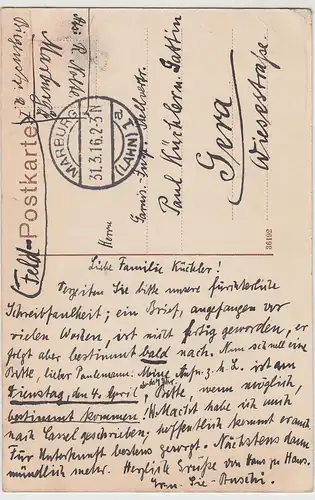 Feld-Postkarte
MARBURG
(LAHN) 1
a
31.3.16.2-3N
Marburg
Herrn
Garnis.-
Paul Küchler u. Gattin
Gera
Wiesestraße
36192
Liebe Familie Küchler!
Verzeihen Sie bitte unsere fürchterliche
Schreibfaulheit; ein Brief, angefangen vor
vielen Wochen, ist nicht fertig geworden, er
folgt aber bestimmt bald nach. Nun schnell eine
Bitte, lieber Paulemann: Meine Aufn. z. M. L. ist am
Dienstag, den 4. April, Bitte, wenn möglich,
bestimmt kommen! habe ich auch
nach Cassel geschrieben; hoffentlich kommt er auch
Für Unterkunft bestens gesorgt. Nächstens dann
mündlich mehr. Herzliche Grüße von Haus zu Haus.